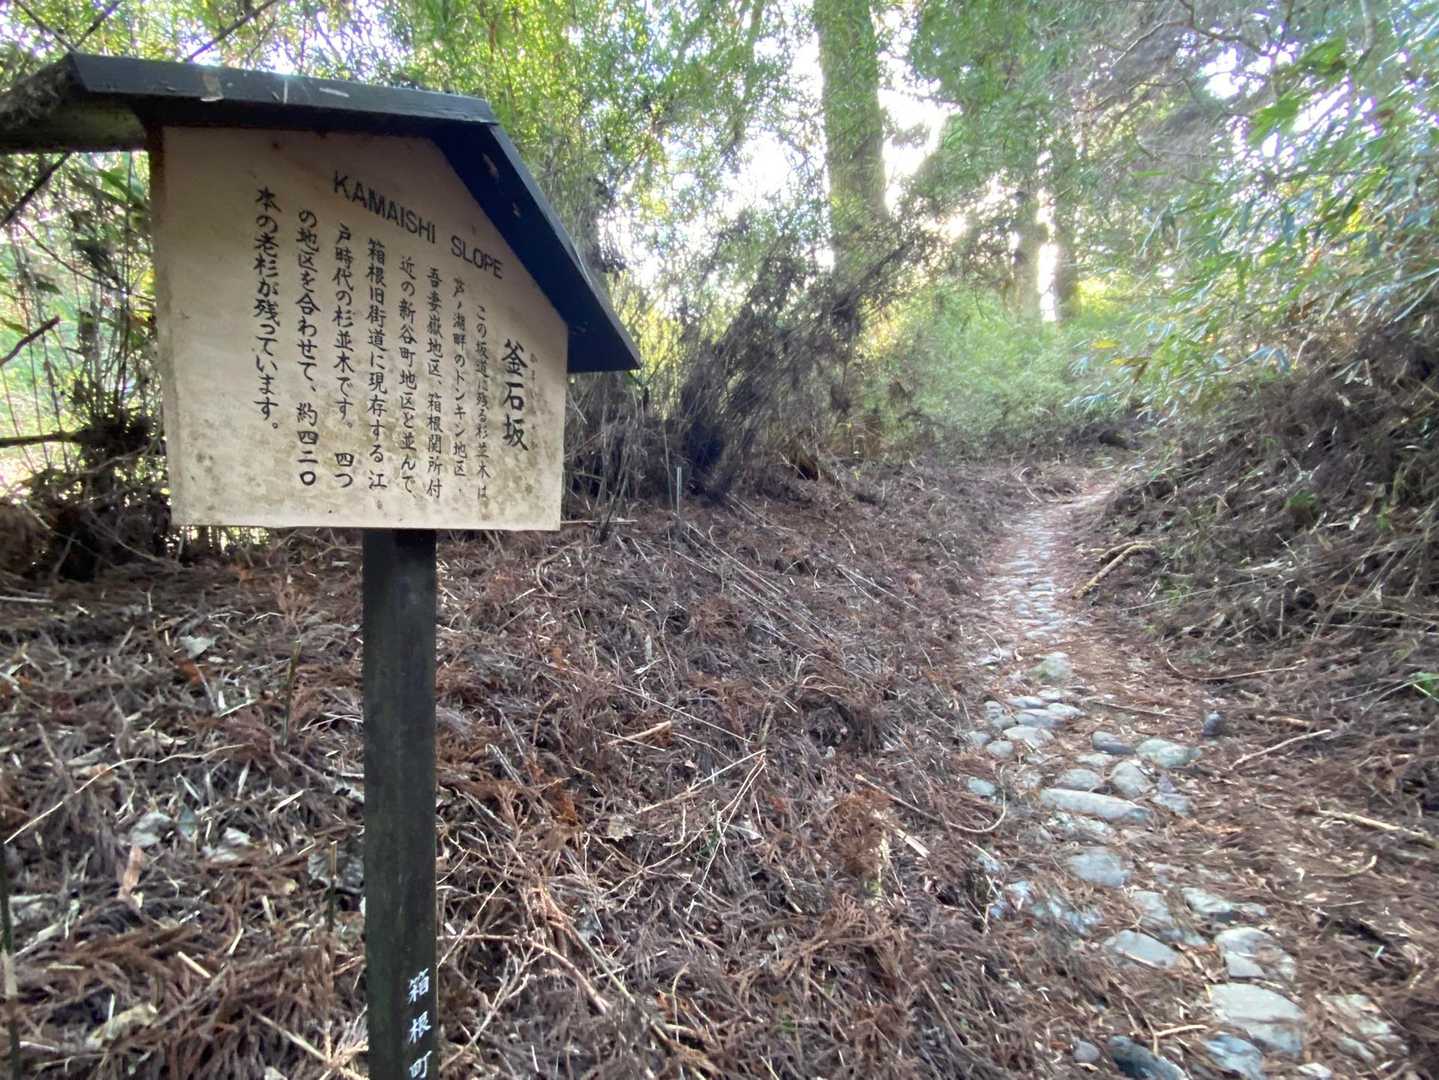 KAMAISHI SLOPE
釜石坂
かまいしざか
この坂道に残る杉並木は
芦ノ湖畔のトンキン地区、
吾妻嶽地区、箱根関所付
近の新谷町地区と並んで
箱根旧街道に現存する江
戸時代の杉並木です。四つ
の地区を合わせて、約四二〇
本の老杉が残っています。
箱根町